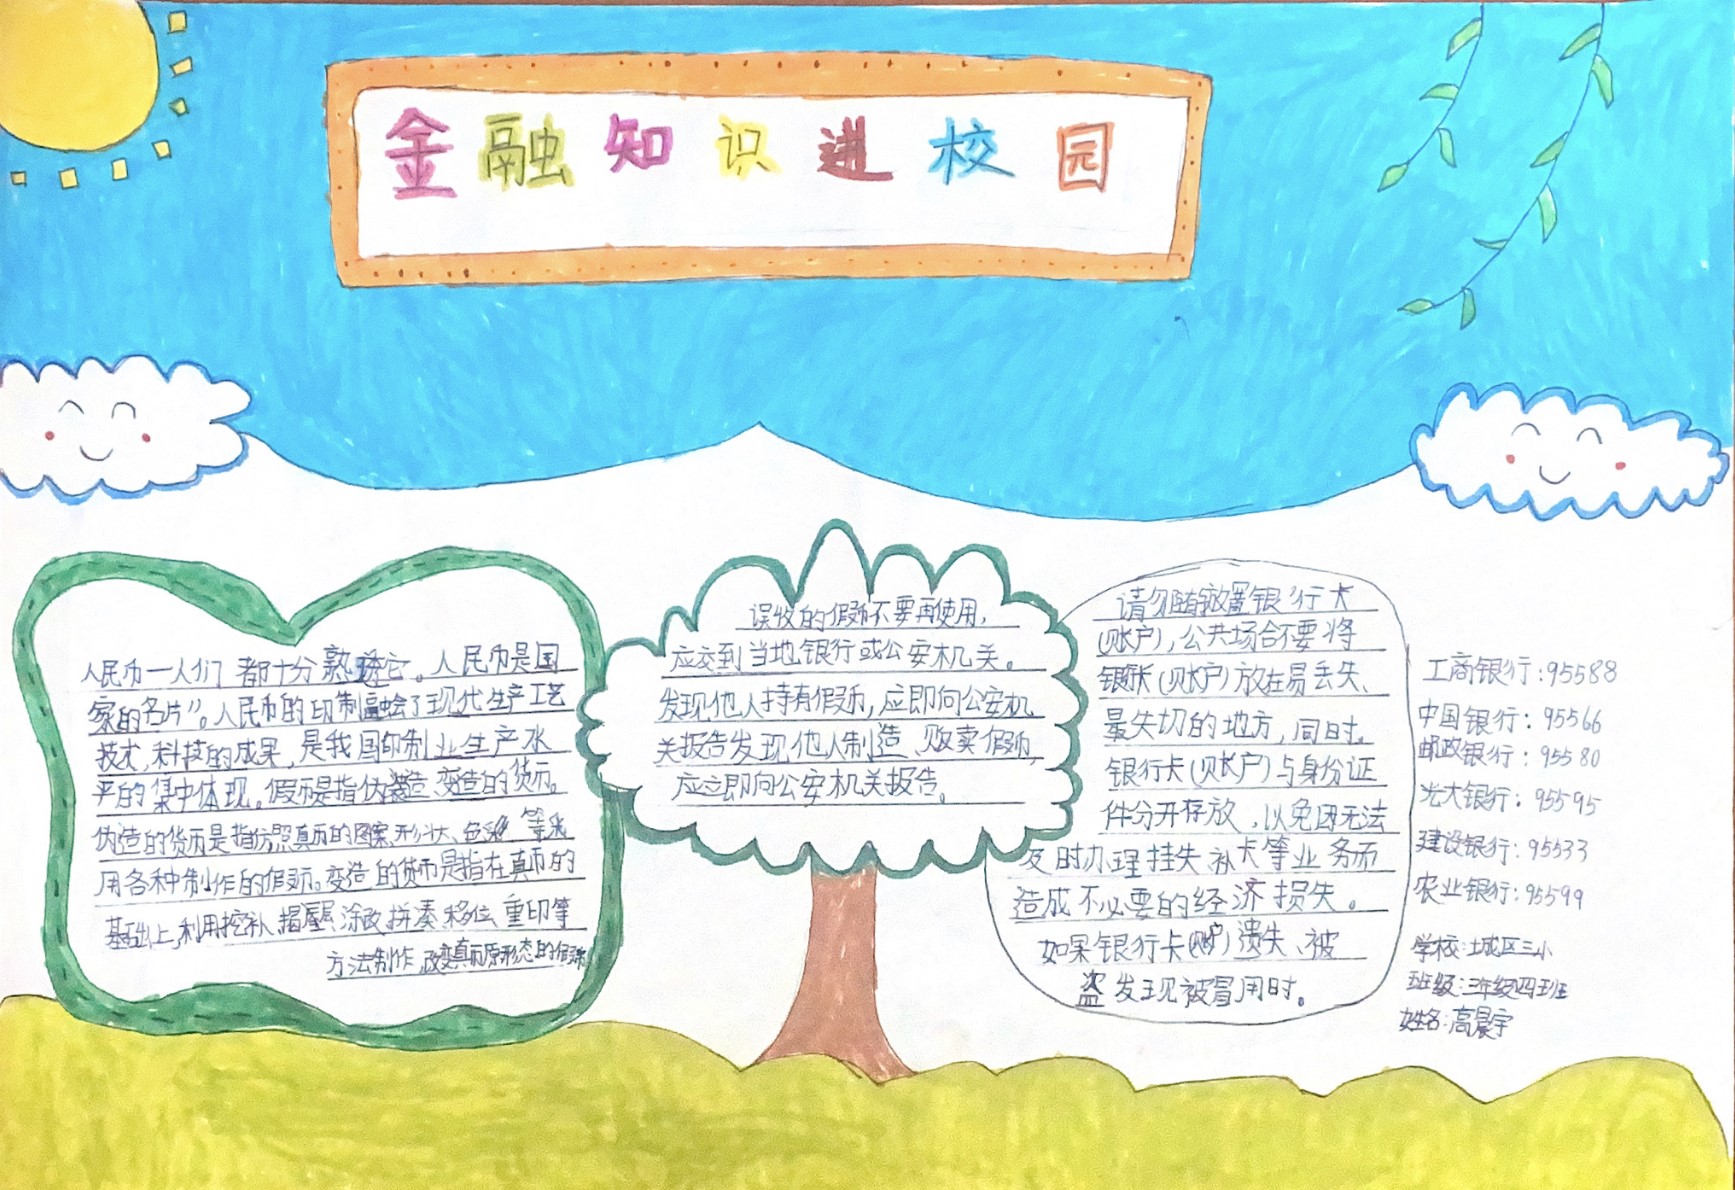 金融知识进校园
人民币一人们都十分熟悉它。人民币是国
家的名片”。人民币的印制蕴绘了现代生产工艺
技术,科技的成果,是我国印制业生产水
平的集中体现。假币是指伪造、变造的货币。
伪造的货币是指仿照真币的图案、形状、色彩等采
用各种制作的假币。变造的货币是指在真币的
基础上,利用挖补、揭层、涂改、拼凑、移位、重印等
方法制作,改变真币原形态的假
误收的假币不要再使用,
应交到当地银行或公安机关。
发现他人持有假币,应即向公安机
关报告发现他人制造、贩卖假币,
应立即向公安机关报告。
请勿随放置银行卡
(账户),公共场合不要将
银行卡(账户)放在易丢失、
最失切的地方,同时,
银行卡(账户)与身份证
件分开存放,以免因无法
及时办理挂失、补卡等业务而
造成不必要的经济损失。
如果银行卡(账户)遗失、被
盗发现被冒用时。
工商银行:95588
中国银行:95566
邮政银行:95580
光大银行:95595
建设银行:95533
农业银行:95599
学校:土城区三小
班级:三年级四班
姓名:高晨宇